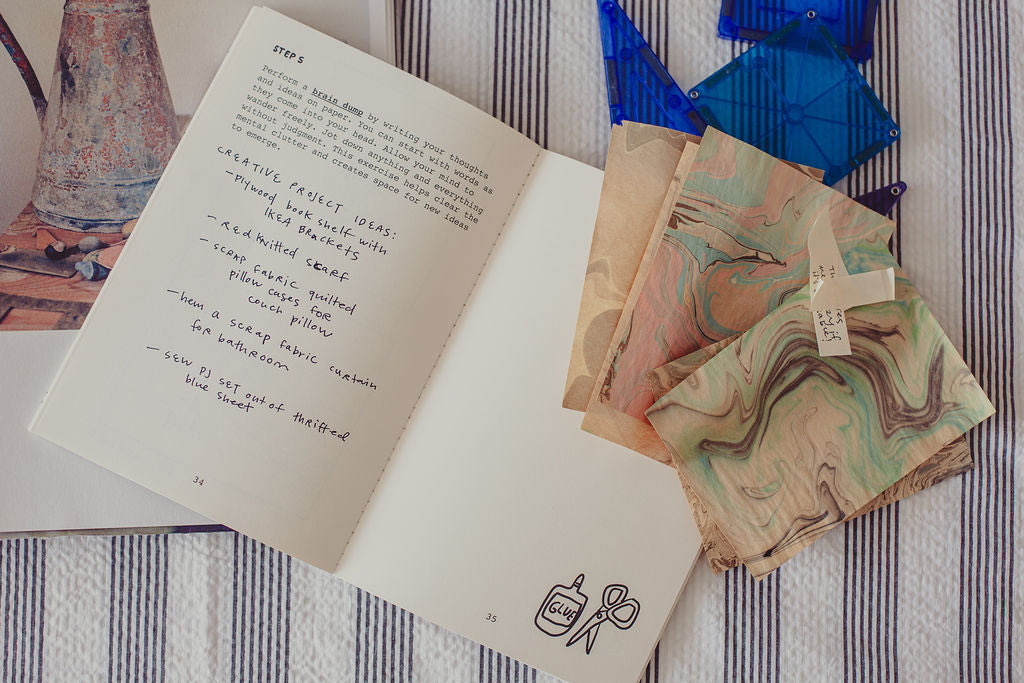 STEPS
Perform a brain dump by writing your thoughts
and ideas on paper. You can start with words as
they come into your head. Allow your mind to
wander freely. Jot down anything and everything
without judgment. This exercise helps clear the
mental clutter and creates space for new ideas
to emerge.
CREATIVE PROJECT IDEAS:
- PLYWOOD BOOK SHELF WITH
IKEA BRACKETS
- RED KNITTED SCARF
- SCRAP FABRIC QUILTED
PILLOW CASES FOR
COUCH PILLOW
- hem A SCRAP FABRIC CURTAIN
FOR BATHROOM
- SEW PJ SET OUT OF THRIFTED
blue SHEET
34
35
GLUE